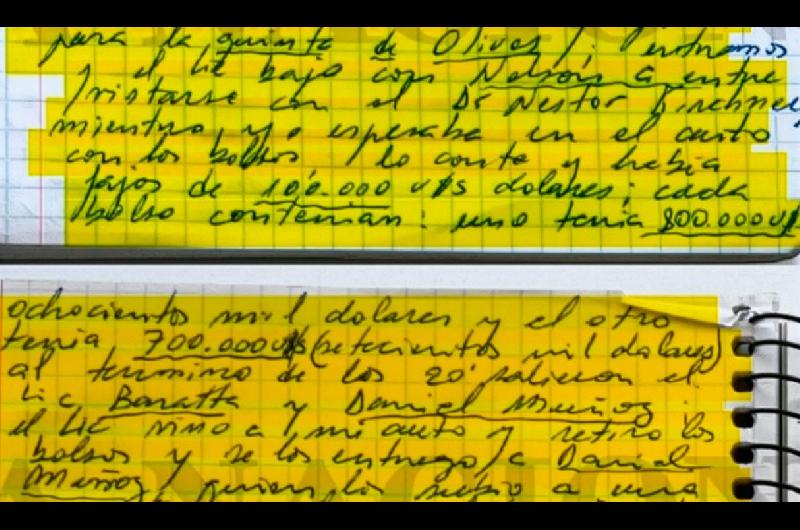 para la quinta de Olivos /; entramos
y el Lic bajo con Nelson a entre
/vistarse con el Dr Nestor Kirchner,
mientras, yo esperaba en el auto
con los bolsos /lo conte y habia
fajos de 100.000 U/S dolares; cada
/bolso contenian: uno tenia 800.000 U/S
ochocientos mil dolares y el otro
tenia 700.000 U/S (setecientos mil dolares)
al termino de los 20' salieron el
Lic Baratta y Daniel Muñoz.
el Lic vino a / mi auto y retiro los
bolsos y se los entrego /a Daniel
Muñoz, / quien los subio a una